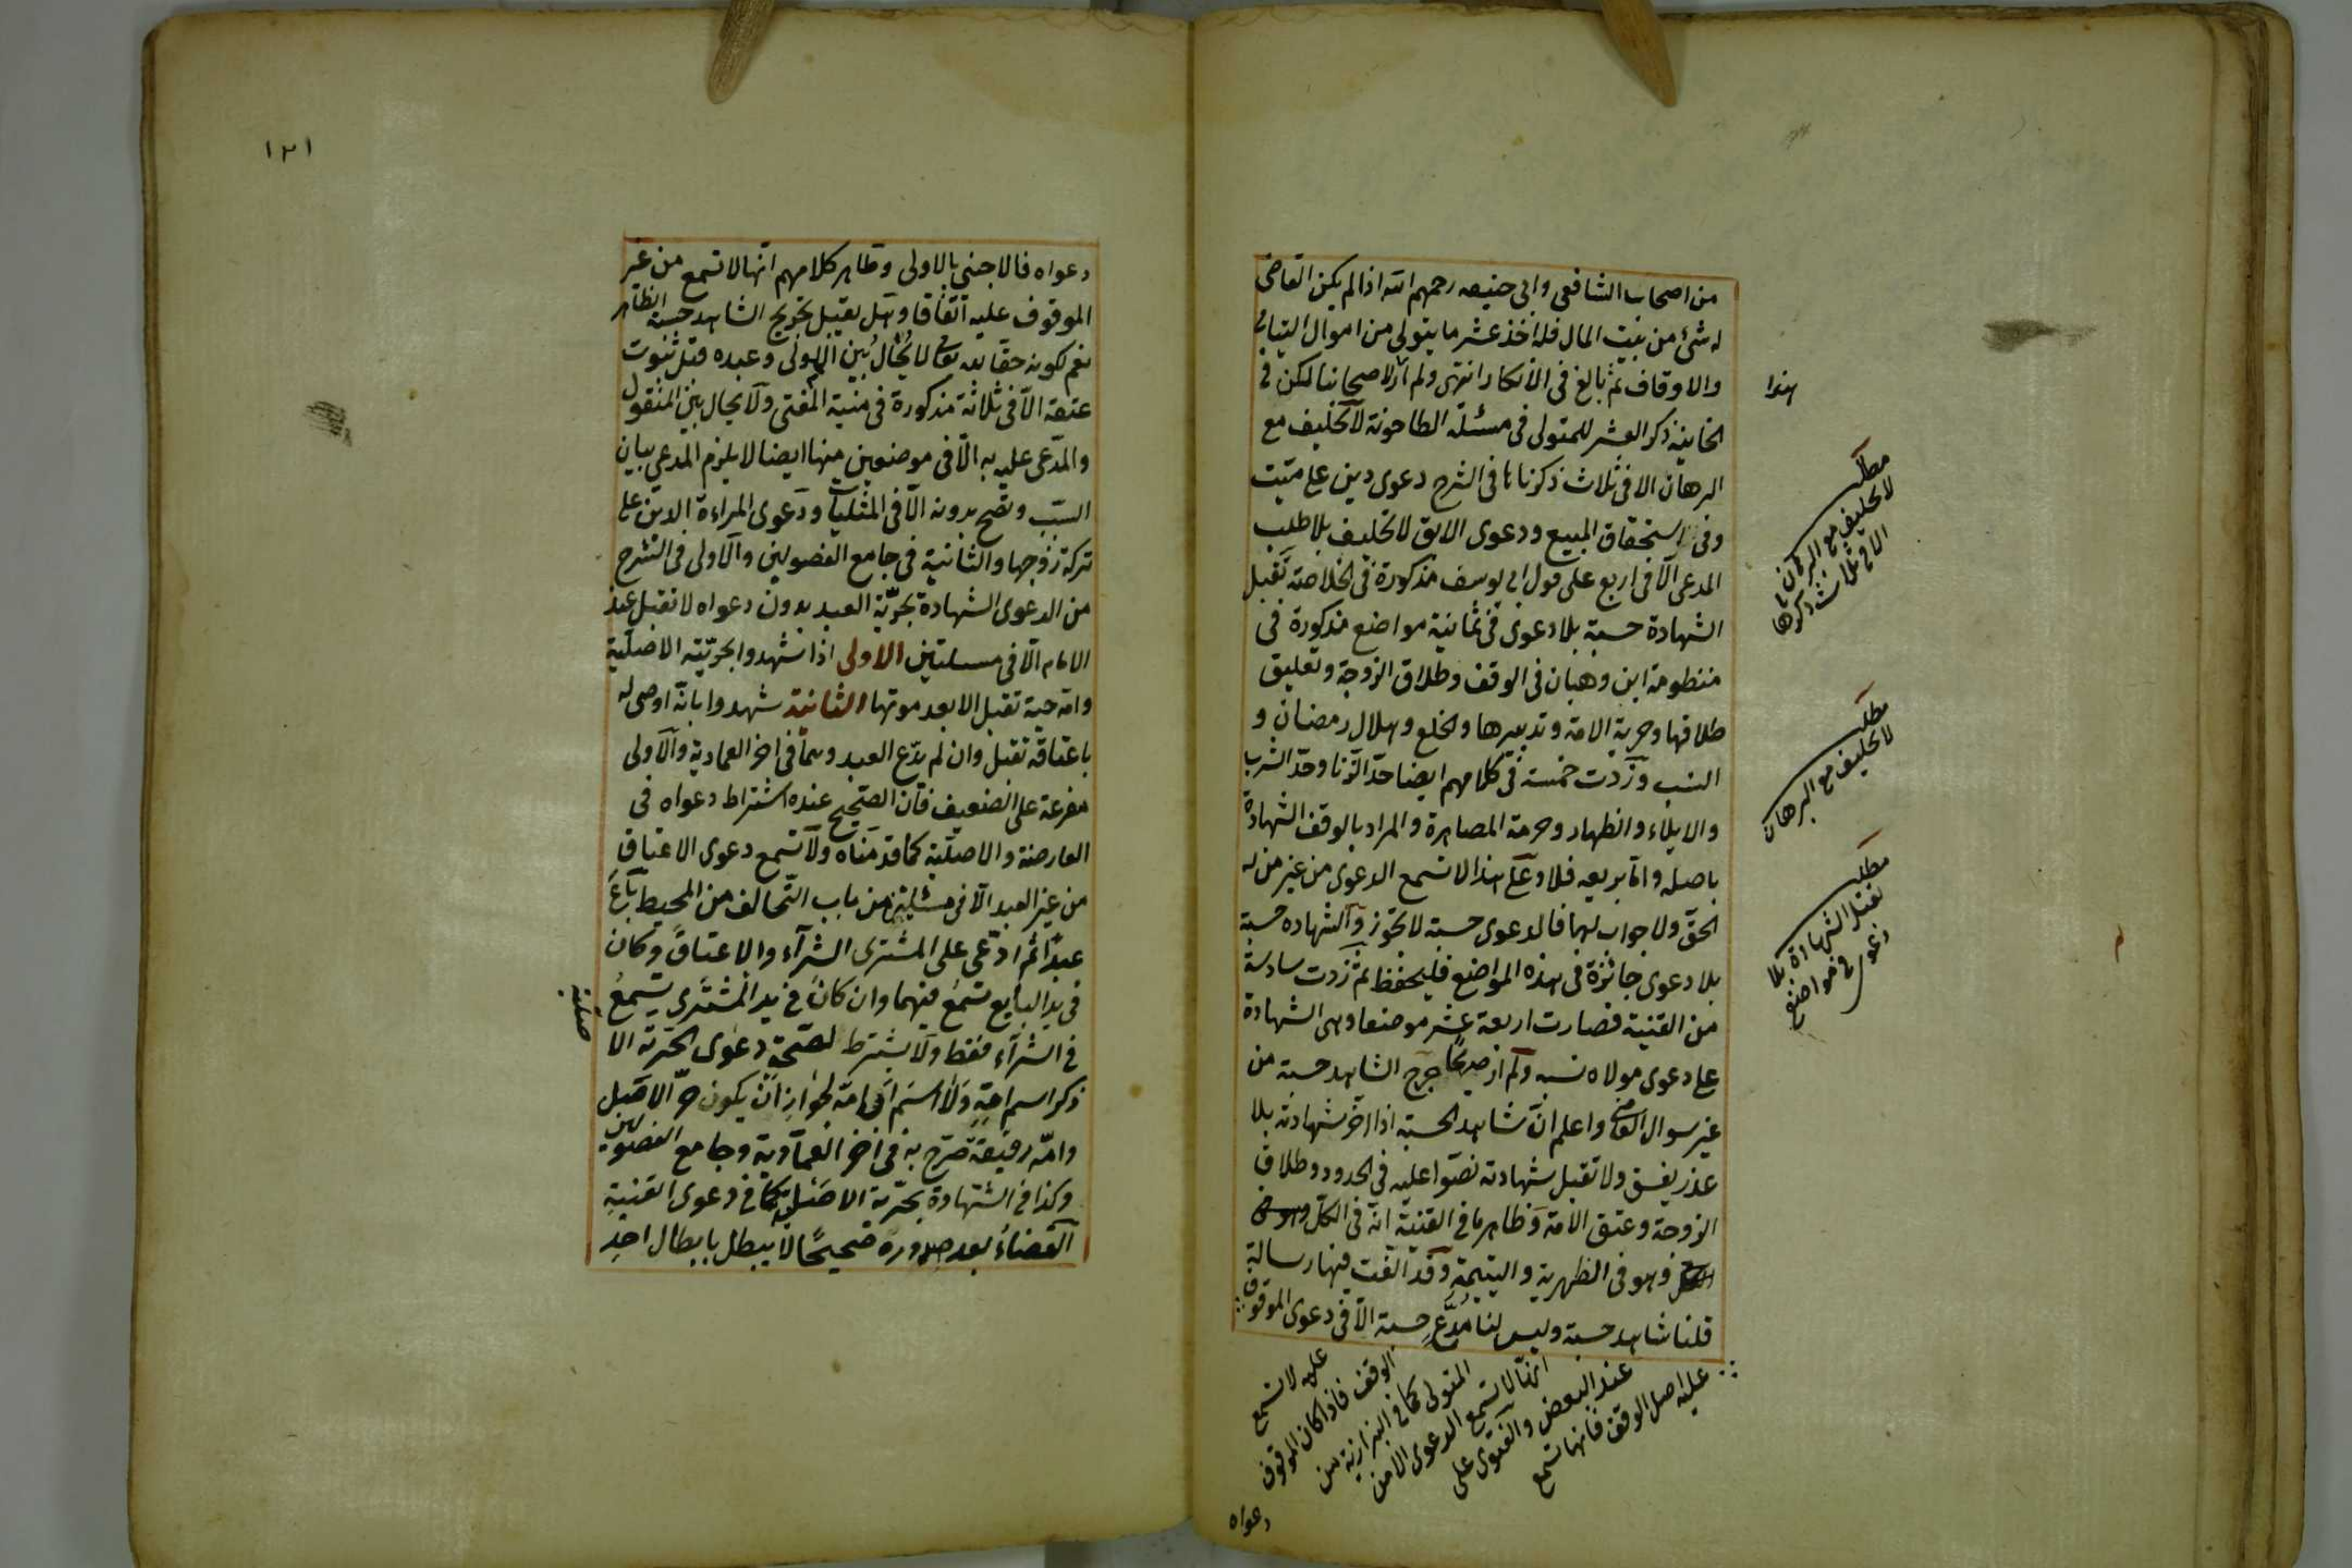 من اصحاب الشافعى وابى حنيفه رحمهم الله اذا لم يكن القاضى
له شئ من بيت المال فله اخذ عشر ما يتولى من اموال اليتامى
والاوقاف ثم بالغ فى الانكار انتهى ولم ار لاصحابنا لكن فى
هذا
الخانية ذكر العشر للمتولى فى مسئلة الطاحونة لا تحليف مع
البرهان الا فى ثلاث ذكرناها فى الشرح دعوى دين على ميت
وفى استحقاق المبيع ودعوى الابق لا تحليف بلا طلب
المدعى الا فى اربع على قول ابى يوسف مذكورة فى الخلاصة تقبل
الشهادة حسبة بلا دعوى فى ثمانية مواضع مذكورة فى
منظومة ابن وهبان فى الوقف وطلاق الزوجة وتعليق
طلاقها وحرية الامة وتدبيرها والخلع وهلال رمضان و
النسب وزدت خمسة فى كلامهم ايضا حد الزنا وحد الشرب
والايلاء والظهار وحرمة المصاهرة والمراد بالوقف الشهادة
باصله واما بريعه فلا وعلى هذا لا تسمع الدعوى من غير من له
الحق ولا جواب لها فالدعوى حسبة لا تجوز والشهاده حسبة
بلا دعوى جائزة فى هذه المواضع فليحفظ ثم زدت سادسة
من القنية فصارت اربعة عشر موضعا وهى الشهادة
على دعوى مولاه نسبه ولم ار صريحا جرح الشاهد حسبة من
غير سوال القاضى واعلم ان شاهد الحسبة اذا اخر شهادته بلا
عذر يفسق ولا تقبل شهادته نصوا عليه فى الحدود وطلاق
الزوجة وعتق الامة وظاهر ما فى القنية انه فى الكل
وهو فى الظهرية واليتيمة وقد الفت فيها رسالة
قلنا شاهد حسبة وليس لنا مدع حسبة الا فى دعوى الموقوف
عليه اصل الوقف فانها تسمع
عند البعض والفتوى على
انها لا تسمع الدعوى الا من
المتولى كما فى البزازية من
الوقف فاذا كان الموقوف
عليه لا تسمع
دعواه
مطلب
لا تحليف مع البرهان
الا فى ثلاث ذكرها
مطلب
لا تحليف مع البرهان
مطلب
تقبل الشهادة بلا
دعوى فى مواضع
١٢١
دعواه فالاجنبى بالاولى وظاهر كلامهم انها لا تسمع من غير
الموقوف عليه اتفاقا وهل يقبل تجريح الشاهد حسبة الظاهر
نعم لكونه حقا لله تعالى لا يحال بين المولى وعبده قبل ثبوت
عتقه الا فى ثلاثة مذكورة فى منية المفتى ولا يحال بين المنقول
والمدعى عليه به الا فى موضعين منها ايضا لا يلزم المدعى بيان
السبب وتصح بدونه الا فى المثليات ودعوى المراءة الدين على
تركة زوجها والثانية فى جامع الفصولين والاولى فى الشرح
من الدعوى الشهادة بحرية العبد بدون دعواه لا تقبل عند
الامام الا فى مسئلتين الاولى اذا شهدوا بحريته الاصلية
وامه حية تقبل الا بعد موتها الثانية شهدوا بانه اوصى له
باعتاقه تقبل وان لم يدع العبد وهما فى اخر العمادية والاولى
مفرعة على الضعيف فان الصحيح عنده اشتراط دعواه فى
العارضة والاصلية كما قدمناه ولا تسمع دعوى الاعتاق
من غير العبد الا فى مسئلة من باب التحالف من المحيط باع
عبدا ثم ادعى على المشترى الشراء والاعتاق وكان
فى يد البايع تسمع فيهما وان كان فى يد المشترى تسمع
فى الشراء فقط ولا يشترط لصحة دعوى الحرية الا
صلية
ذكر اسم امه ولا اسم اب امه لجواز ان يكون حر الاصل
وامه رقيقة صرح به فى اخر العمادية وجامع الفصولين
وكذا فى الشهادة بحرية الاصل كما فى دعوى القنية
القضاء بعد صدوره صحيحا لا يبطل بابطال احد